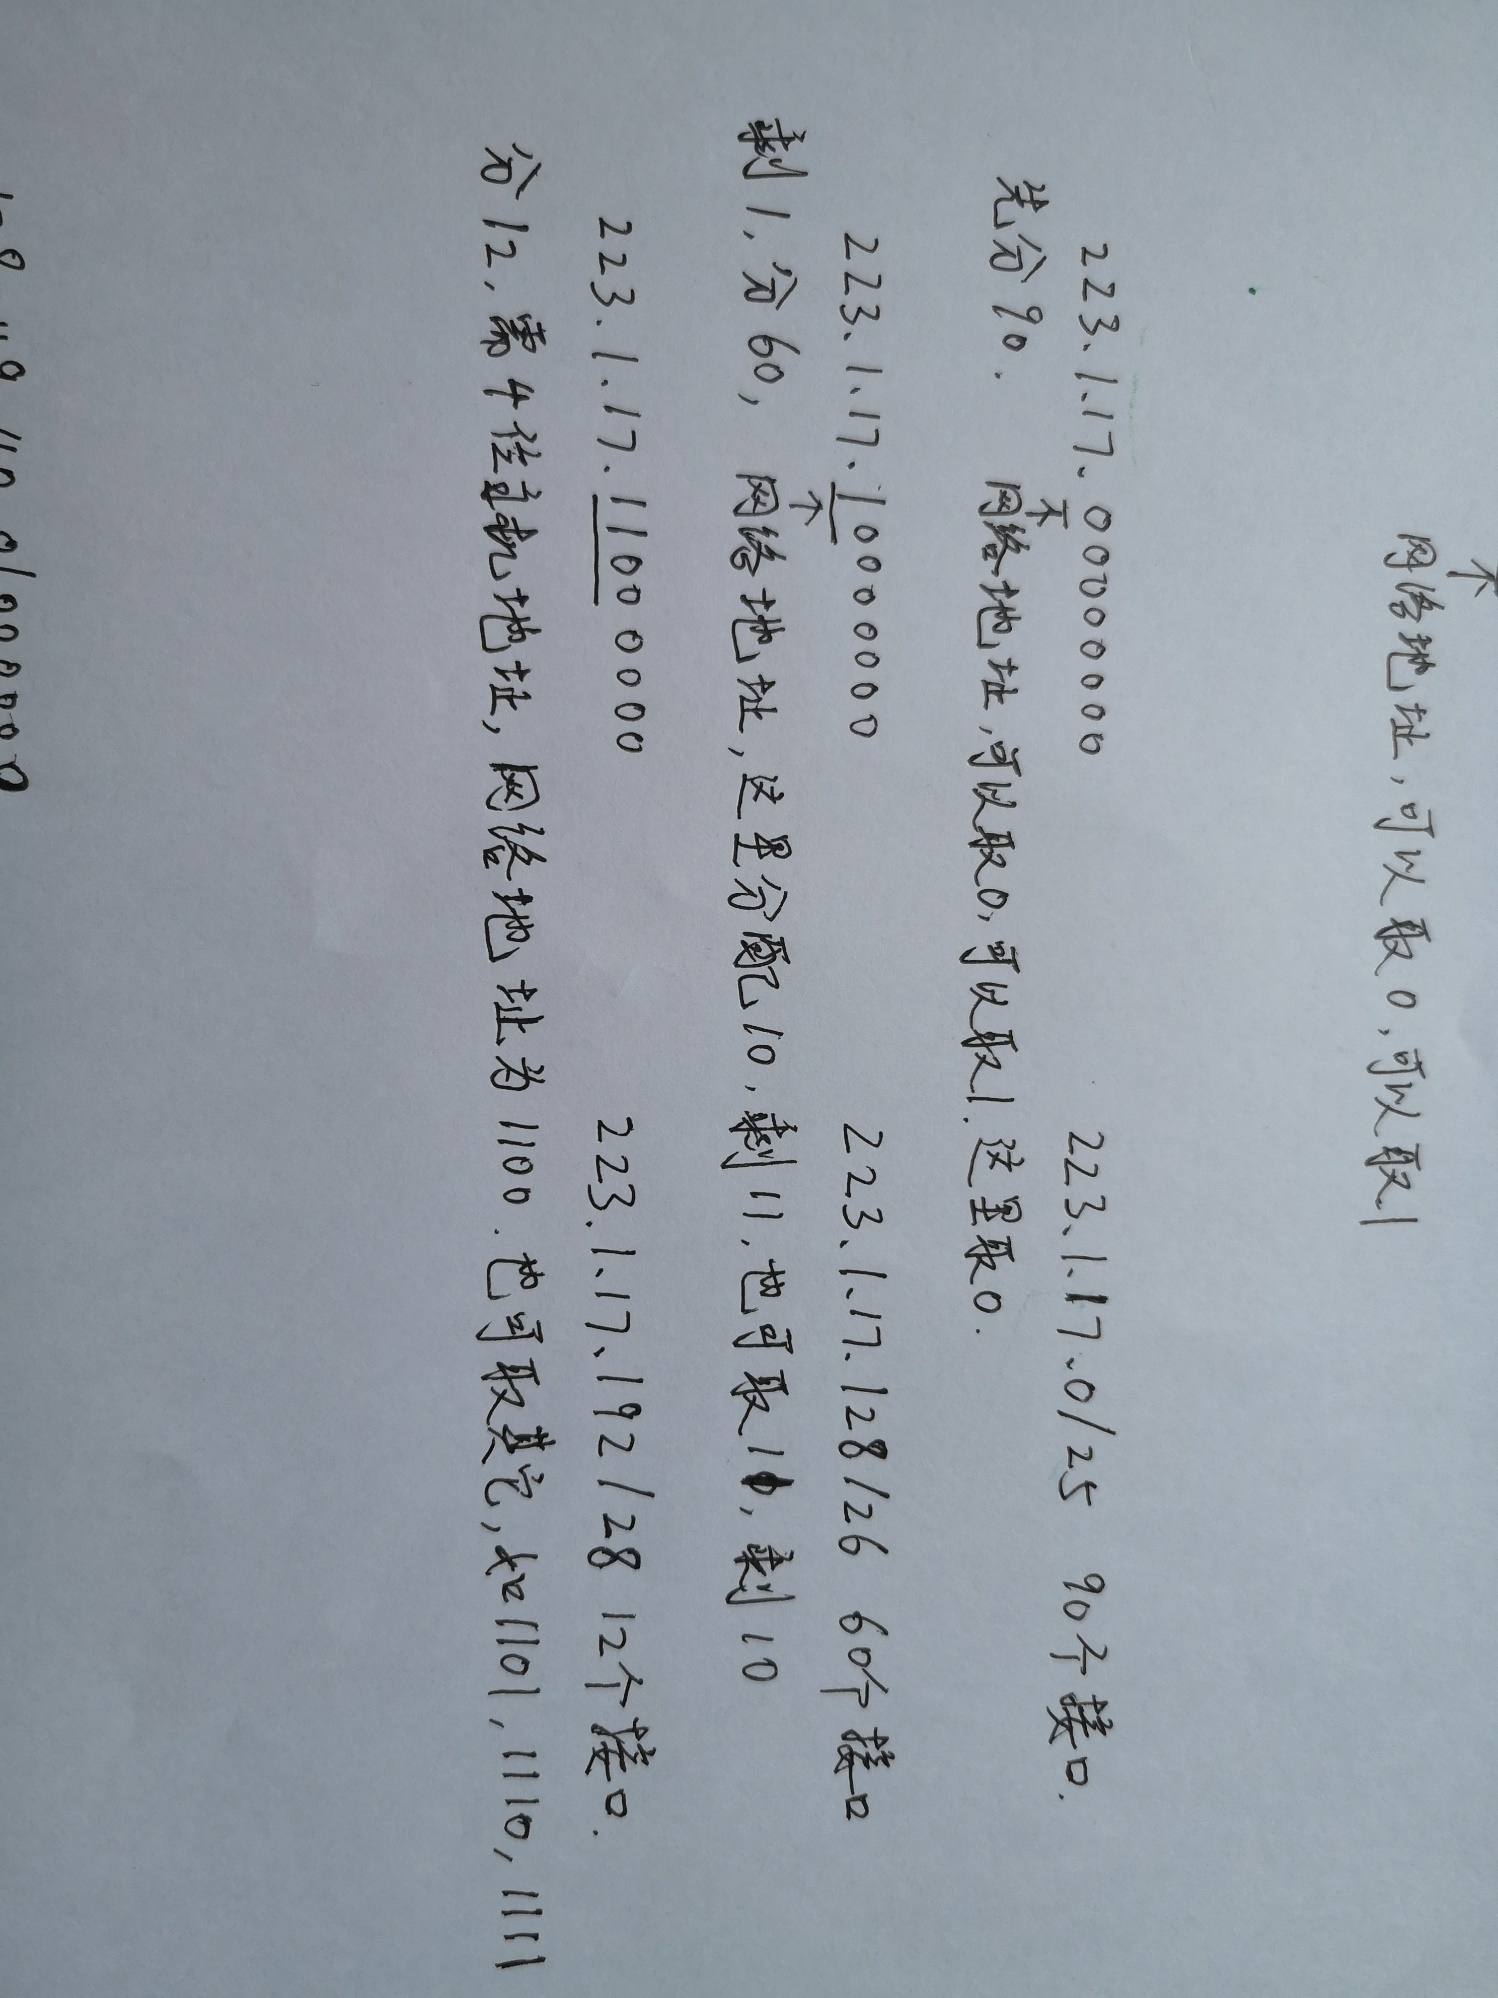 网络地址，可以取0，可以取1
223.1.17.00000000 223.1.17.0/25 90个接口.
先分90. 网络地址，可以取0，可以取1.这里取0.
223.1.17.10000000 223.1.17.128/26 60个接口
剩1，分60，网络地址，这里分配10，剩11，也可取11，剩10
223.1.17.11000000 223.1.17.192/28 12个接口.
分12，需4位主机地址，网络地址为1100.也可取其它，如1101，1110，1111